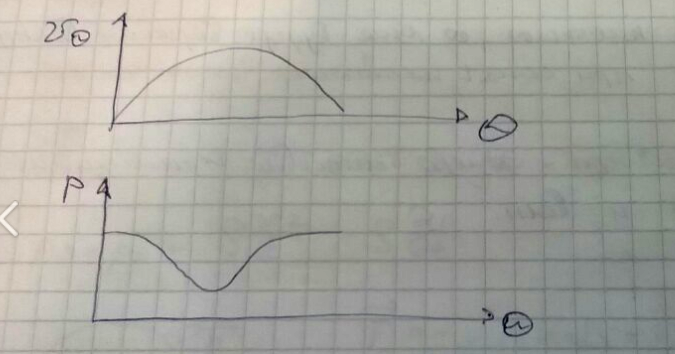 υ_Θ
Θ
P
Θ